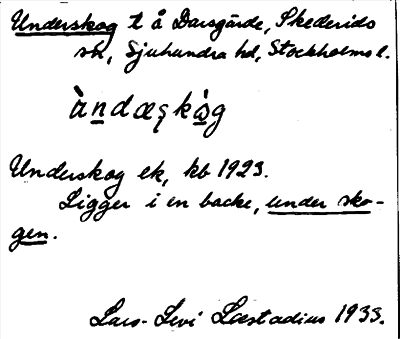 Underskog t å Darsgärde, Skederids
sn, Sjuhundra hd, Stockholms l.
àndæșkå̀g
Underskog ek, kb 1923.
Ligger i en backe, under sko-
gen.
Lars-Levi Læstadius 1933.